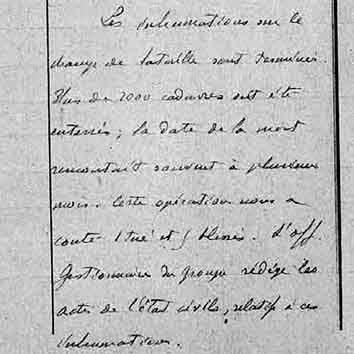 Les inhumations sur le
champ de bataille sont terminées.
Plus de 2000 cadavres ont été
enterrés ; la date de la mort
remontait souvent à plusieurs
mois. Cette opération nous a
couté 1 tué et 5 blessés. L'off.
Gestionnaire du groupe rédige les
actes de l'état civils, relatif à ces
inhumations.